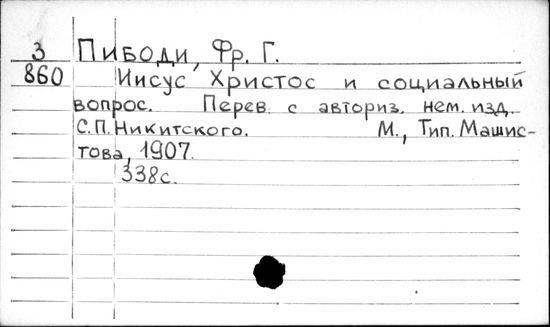 3 Пибоди, Фр. Г.
860 Иисус Христос и социальный
вопрос. Перев. с авториз. нем. изд.
С.П. Никитского. М., Тип. Машис-
това, 1907.
338с.